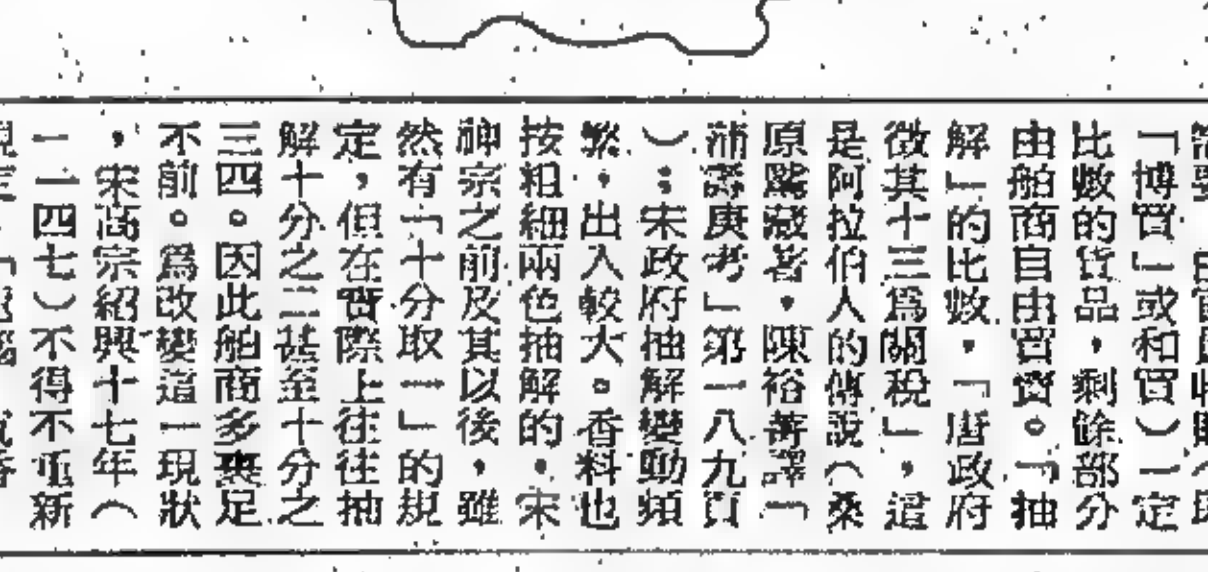 「博買」或和買)一定
比數的貨品,剩餘部分
由舶商自由買賣。「抽
解」的比數,「唐政府
徵其十三爲關稅」,這
是阿拉伯人的傳說(桑
原騭藏著,陳裕菁譯「
蒲壽庚考」第一八九頁
):宋政府抽解變動頻
繁,出入較大。香料也
按粗細兩色抽解的,宋
神宗之前及其以後,雖
然有「十分取一」的規
定,但在實際上往往抽
解十分之二甚至十分之
三四。因此舶商多裹足
不前。爲改變這一現狀
,宋高宗紹興十七年(
一一四七)不得不重新